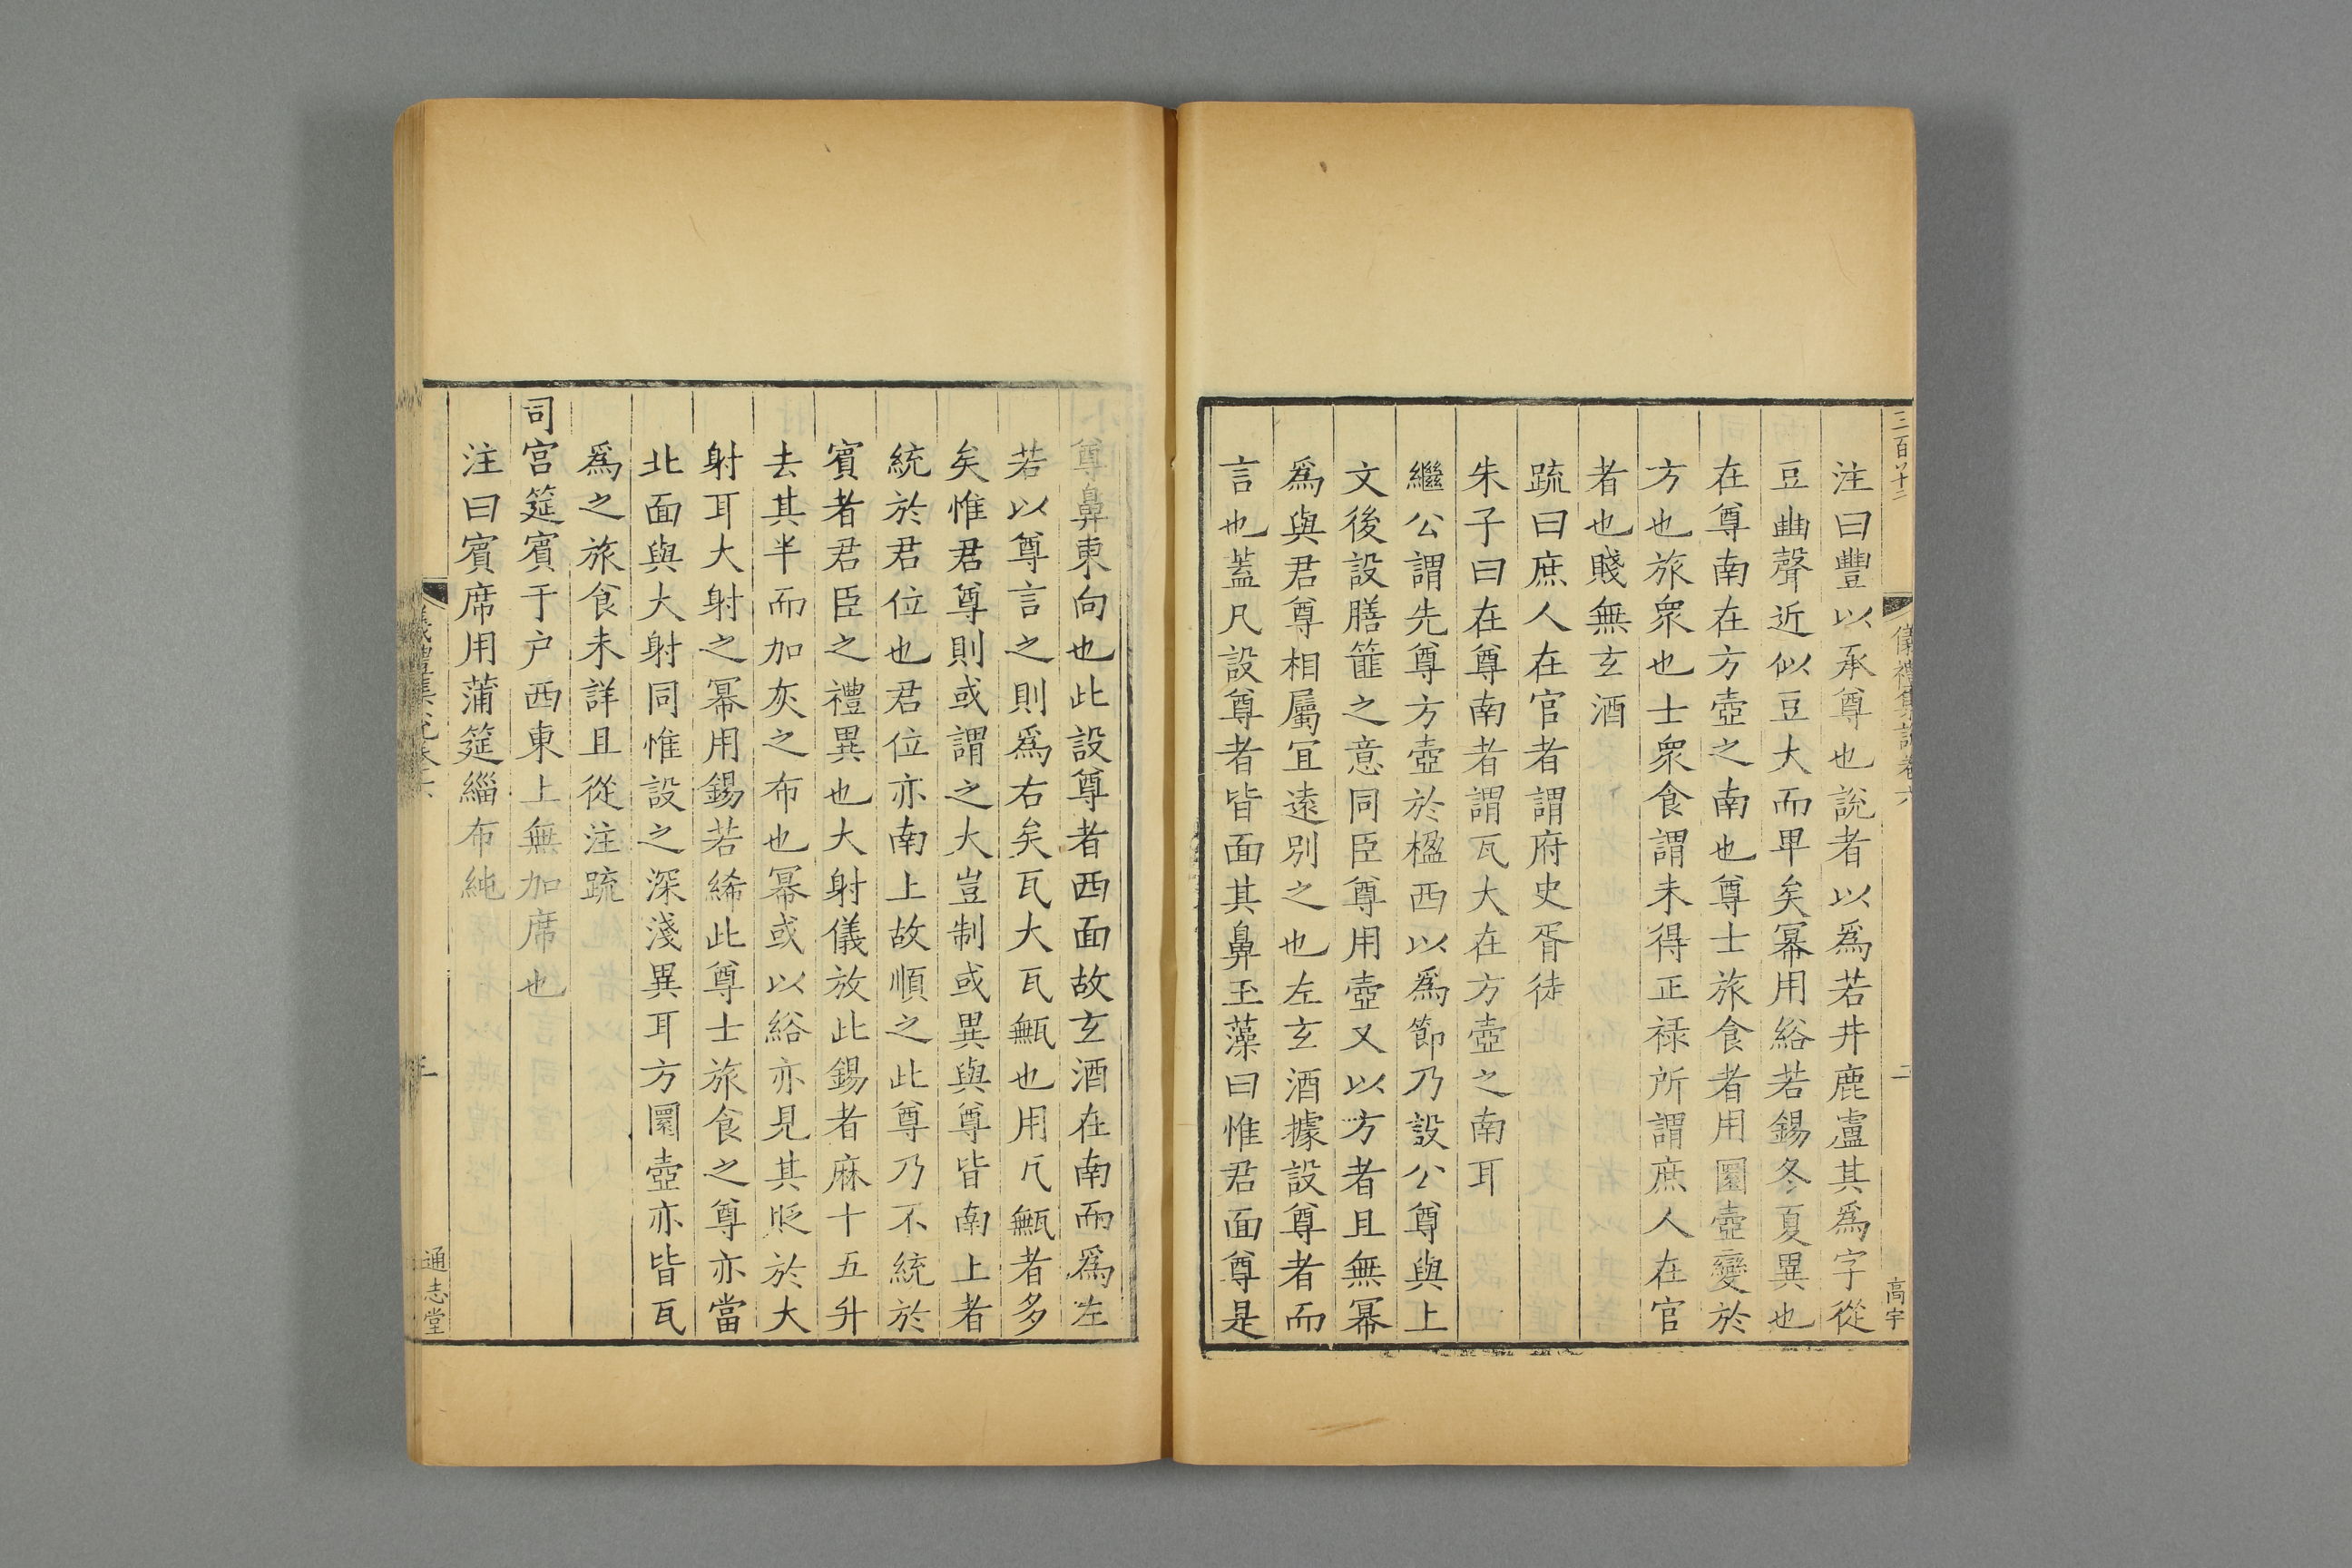 三百八十二
儀禮集說卷六
二
高宇
注曰豐以承尊也說者以爲若井鹿盧其爲字從
豆𧯮聲近似豆大而𤰞矣冪用綌若錫冬夏異也
在尊南在方壺之南也尊士旅食者用圜壺變於
方也旅衆也士衆食謂未得正禄所謂庶人在官
者也賤無玄酒
疏曰庶人在官者謂府史胥徒
朱子曰在尊南者謂瓦大在方壺之南耳
繼公謂先尊方壺於楹西以爲節乃設公尊與上
文後設膳篚之意同臣尊用壺又以方者且無冪
爲與君尊相屬宜遠別之也左玄酒據設尊者而
言也蓋凡設尊者皆面其鼻玉藻曰惟君面尊是
尊鼻東向也此設尊者西面故玄酒在南而爲左
若以尊言之則爲右矣瓦大瓦甒也用瓦甒者多
矣惟君尊則或謂之大豈制或異與尊皆南上者
統於君位也君位亦南上故順之此尊乃不統於
賓者君臣之禮異也大射儀放此錫者麻十五升
去其半而加灰之布也冪或以綌亦見其貶於大
射耳大射之冪用錫若絺此尊士旅食之尊亦當
北面與大射同惟設之深淺異耳方圜壺亦皆瓦
爲之旅食未詳且從注疏
司宮筵賓于户西東上無加席也
注曰賓席用蒲筵緇布純
儀禮集說卷六
通志堂